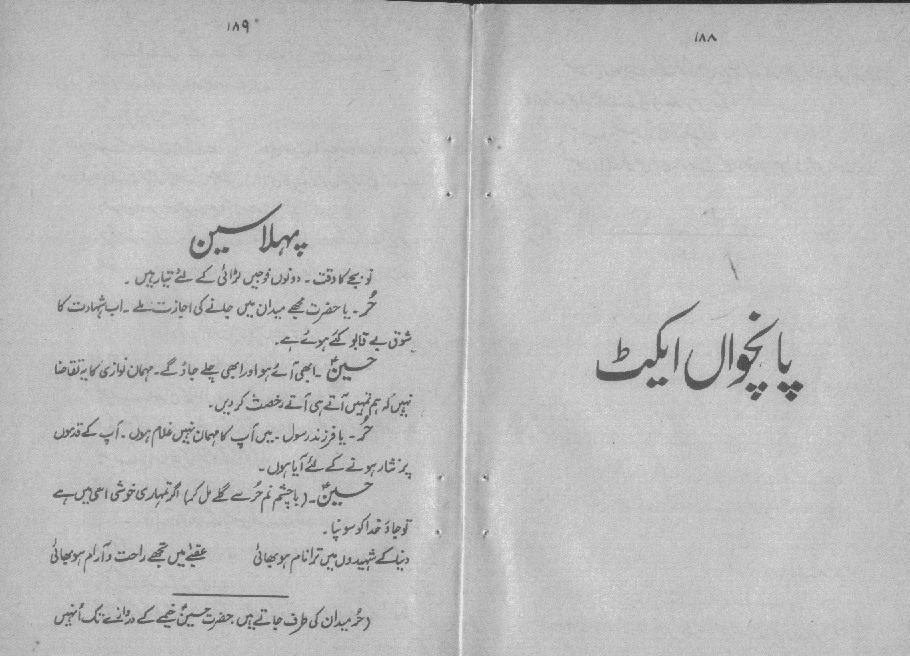 ۱۸۸
پانچواں ایکٹ
۱۸۹
پہلا سین
نو بجے کا وقت ۔ دونوں فوجیں لڑائی کے لئے تیار ہیں ۔
حُر ۔ یا حضرت مجھے میدان میں جانے کی اجازت ملے ۔ اب شہادت کا
شوق بے قابو کئے ہوئے ہے۔
حسینؑ ۔ ابھی آئے ہو اور ابھی چلے جاؤ گے ۔ مہمان نوازی کا یہ تقاضا
نہیں کہ ہم تمہیں آتے ہی آتے رخصت کر دیں ۔
حُر ۔ یا فرزند رسول ۔ میں آپ کا مہمان نہیں غلام ہوں ۔ آپ کے قدموں
پر نثار ہونے کے لئے آیا ہوں ۔
حسینؑ ۔ (باچشم نم حُر سے گلے مل کر) اگر تمہاری خوشی اسی میں ہے
تو جاؤ خدا کو سونپا ۔
دنیا کے شہیدوں میں ترا نام ہو بھائی عقبےٰ میں تجھے راحت و آرام ہو بھائی
(حُر میدان کی طرف جاتے ہیں ۔ حضرت حسینؑ خیمے کے دروازے تک اُنہیں